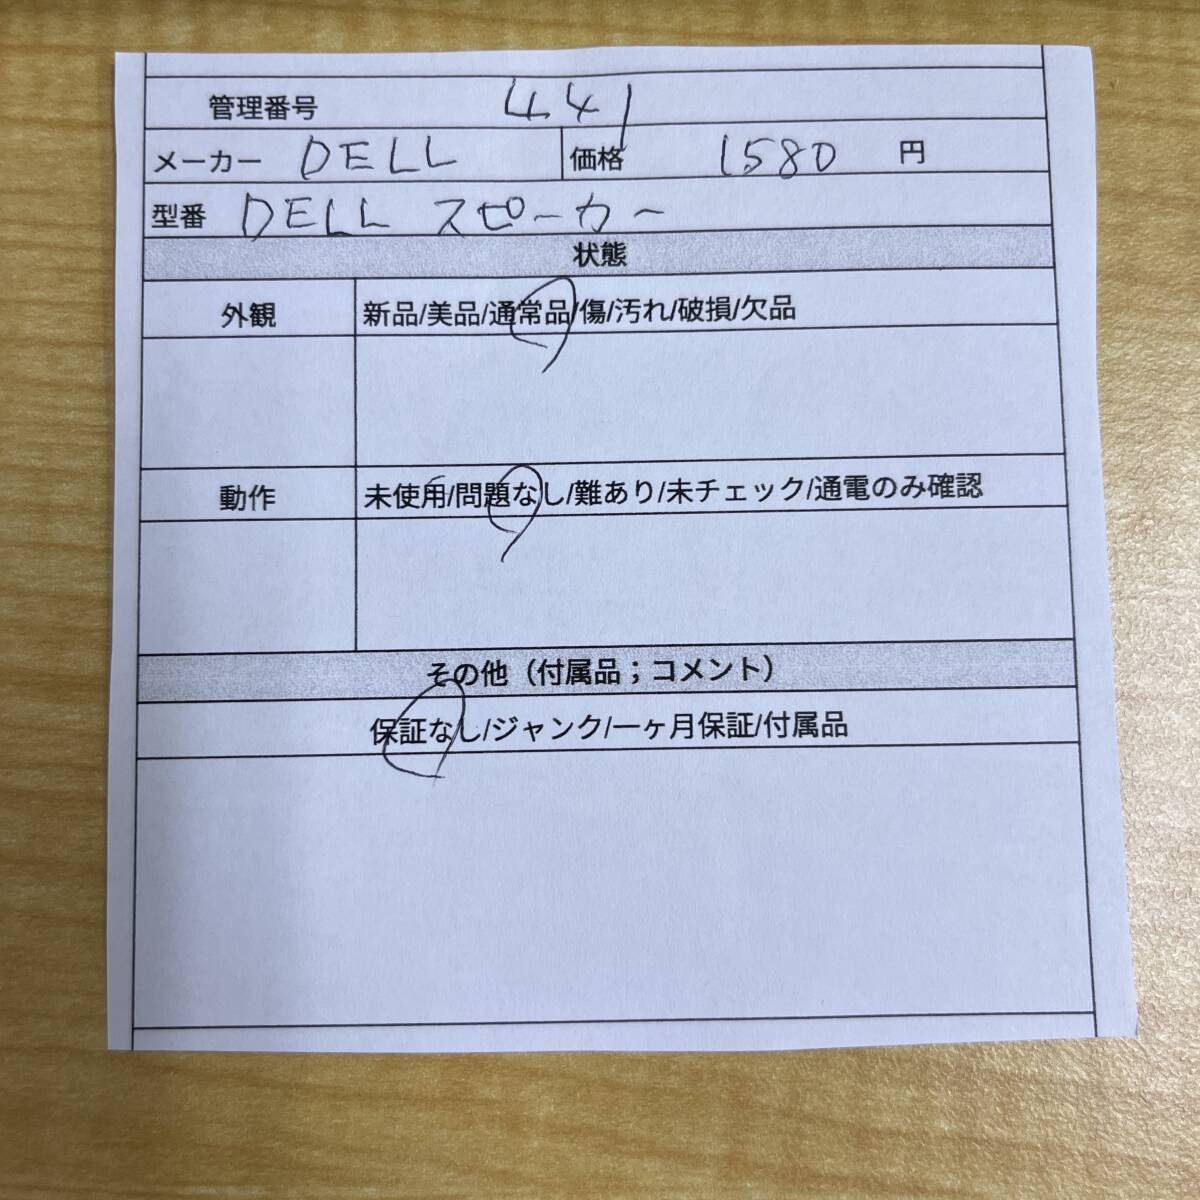 管理番号 441
メーカー DELL 価格 1580 円
型番 DELL スピーカー
状態
外観 新品/美品/通常品/傷/汚れ/破損/欠品
動作 未使用/問題なし/難あり/未チェック/通電のみ確認
その他（付属品；コメント）
保証なし/ジャンク/一ヶ月保証/付属品